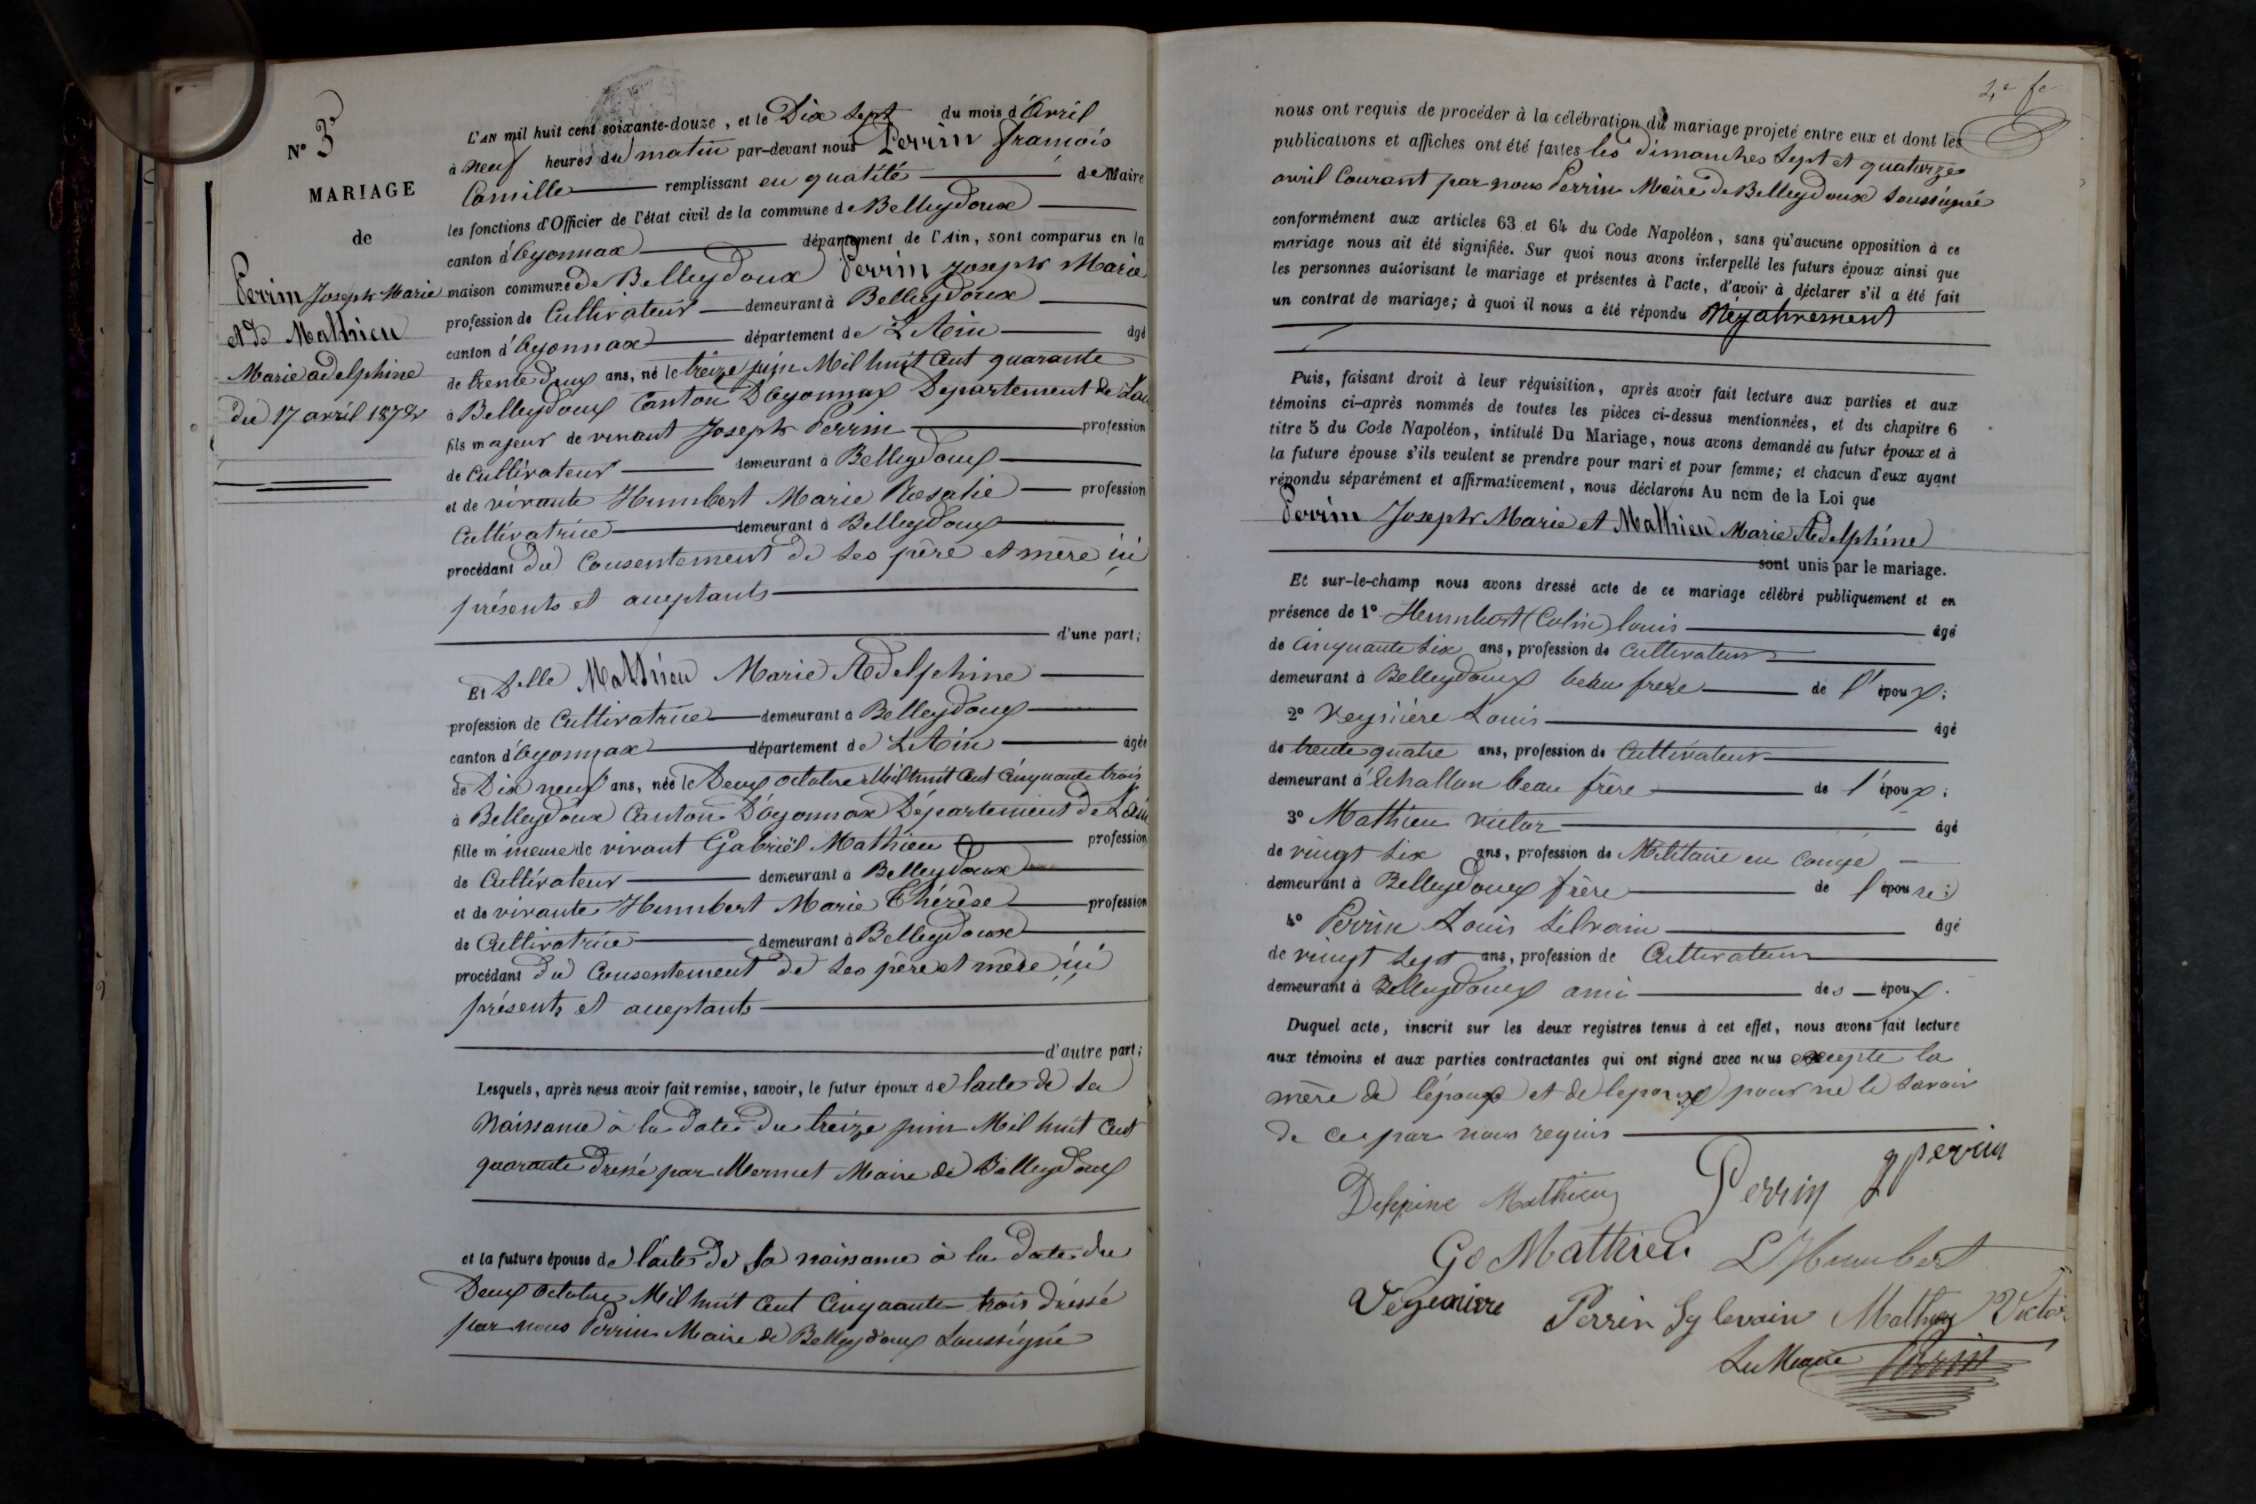 N° 3
MARIAGE
de
Perrin Joseph Marie
et de Mathieu
Marie adelphine
du 17 avril 1872
L'AN mil huit cent soixante-douze, et le Dix Sept du mois d'Avril
à neuf heures du matin par-devant nous Perrin francois
Camille remplissant en qualité de Maire
les fonctions d'Officier de l'état civil de la commune de Belleydoux
canton d'Oyonnax département de l'Ain, sont comparus en la
maison commune de Belleydoux Perrin Joseph Marie
profession de Cultivateur demeurant à Belleydoux
canton d'Oyonnax département de L'Ain âgé
de trente deux ans, né le treize juin Mil huit Cent quarante
à Belleydoux Canton D'Oyonnax Departement de L'ain
fils majeur de vivant Joseph Perrin profession
de Cultivateur demeurant à Belleydoux
et de vivante Humbert Marie Rosalie profession
Cultivatrice demeurant à Belleydoux
procédant du Consentement de ses père et mère ici
présents et acceptants
d'une part;
Et Delle Mathieu Marie Adelphine
profession de Cultivatrice demeurant à Belleydoux
canton d'Oyonnax département de L'Ain âgée
de Dix neuf ans, née le Deux octobre Mil huit Cent Cinquante trois
à Belleydoux Canton D'Oyonnax Département de L'Ain
fille mineure de vivant Gabriël Mathieu profession
de Cultivateur demeurant à Belleydoux
et de vivante Humbert Marie Thérèse profession
de Cultivatrice demeurant à Belleydoux
procédant du Consentement de ses père et mère ici
présents et acceptants
d'autre part;
Lesquels, après nous avoir fait remise, savoir, le futur époux de l'acte de sa
Naissance à la date du treize juin Mil huit Cent
quarante dressé par Mermet Maire de Belleydoux
et la future épouse de l'acte de sa naissance à la date du
Deux octobre Mil huit Cent Cinquante trois dréssé
par nous Perrin Maire de Belleydoux Soussigné
nous ont requis de procéder à la célébration du mariage projeté entre eux et dont les
publications et affiches ont été faites les dimanches Sept et quatorze
avril Courant par nous Perrin Maire de Belleydoux soussigné
conformément aux articles 63 et 64 du Code Napoléon, sans qu'aucune opposition à ce
mariage nous ait été signifiée. Sur quoi nous avons interpellé les futurs époux ainsi que
les personnes autorisant le mariage et présentes à l'acte, d'avoir à déclarer s'il a été fait
un contrat de mariage; à quoi il nous a été répondu Négativement
Puis, faisant droit à leur réquisition, après avoir fait lecture aux parties et aux
témoins ci-après nommés de toutes les pièces ci-dessus mentionnées, et du chapitre 6
titre 5 du Code Napoléon, intitulé Du Mariage, nous avons demandé au futur époux et à
la future épouse s'ils veulent se prendre pour mari et pour femme; et chacun d'eux ayant
répondu séparément et affirmativement, nous déclarons Au nom de la Loi que
Perrin Joseph Marie et Mathieu Marie Adelphine
sont unis par le mariage.
Et sur-le-champ nous avons dressé acte de ce mariage célébré publiquement et en
présence de 1° Humbert (Colin) louis âgé
de Cinquante Six ans, profession de Cultivateur
demeurant à Belleydoux beau frere de l'époux;
2° Veysière Louis âgé
de trente quatre ans, profession de Cultivateur
demeurant à Echallon beau frère de l'époux;
3° Mathieu victor âgé
de vingt Six ans, profession de Militaire en Congé
demeurant à Belleydoux frère de l'épouse;
4° Perrin Louis Silvain âgé
de vingt Sept ans, profession de Cultivateur
demeurant à Belleydoux ami des époux.
Duquel acte, inscrit sur les deux registres tenus à cet effet, nous avons fait lecture
aux témoins et aux parties contractantes qui ont signé avec nous excepte la
mère de l'époux et de l'epouse pour ne le savoir
de ce par nous requis
Delphine Mathieu Perrin J perrin
Ge Mathieu L Humbert
Perrin Sylevain Mathieu Victor
Le Maire Perrin